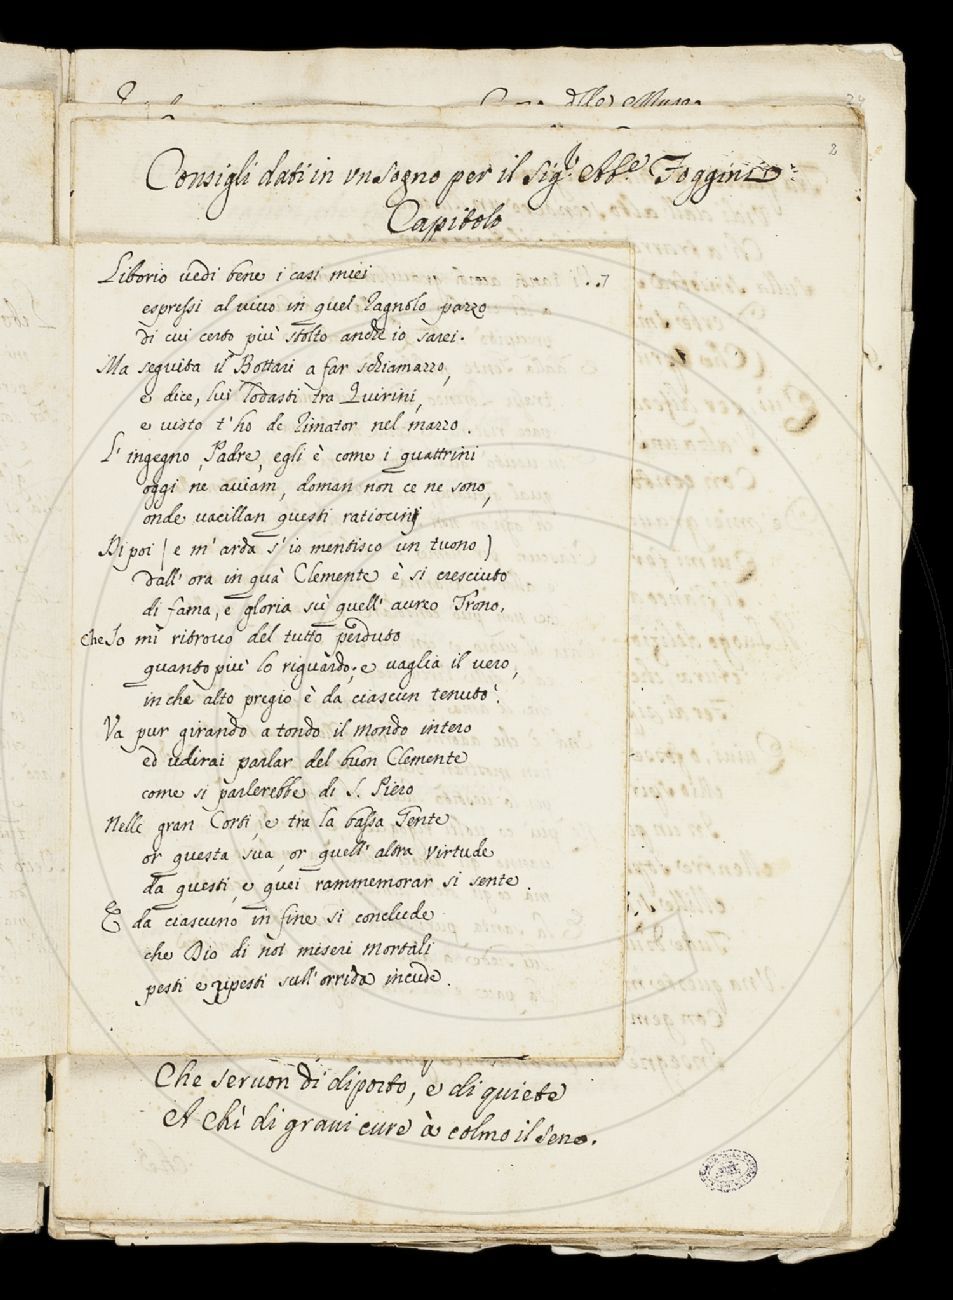 24
2
Consigli dati in un sogno per il Sig.r Ab.e Foggini
Capitolo
7
Liborio vedi bene i casi miei
espressi al vivo in quel Ragnolo pazzo
di cui certo più stolto anche io sarei.
Ma seguita il Bottari a far schiamazzo,
e dice, lui lodasti tra Quirini,
e visto t'ho de Rimator nel mazzo.
L'ingegno, Padre, egli è come i quattrini
oggi ne aviam, doman non ce ne sono,
onde vacillan questi ratiocinj
Di poi (e m'arda s'io mentisco un tuono)
dall'ora in quà Clemente è si cresciuto
di fama, e gloria sù quell'aureo Trono,
Che Io mi ritrovo del tutto perduto
quanto più lo riguardo; e vaglia il vero,
in che alto pregio è da ciascun tenuto?
Va pur girando a tondo il mondo intero
ed udirai parlar del buon Clemente
come si parlerebbe di S. Piero
Nelle gran Corti, e tra la bassa Gente
or questa sua, or quell'altra virtude
da questi, e quei rammemorar si sente.
E da ciascuno in fine si conclude
che Dio di noi miseri mortali
pesti e ripesti sull'orrida incude.
Che servon di diporto, e di quiete
A chi di gravi cure à colmo il seno.